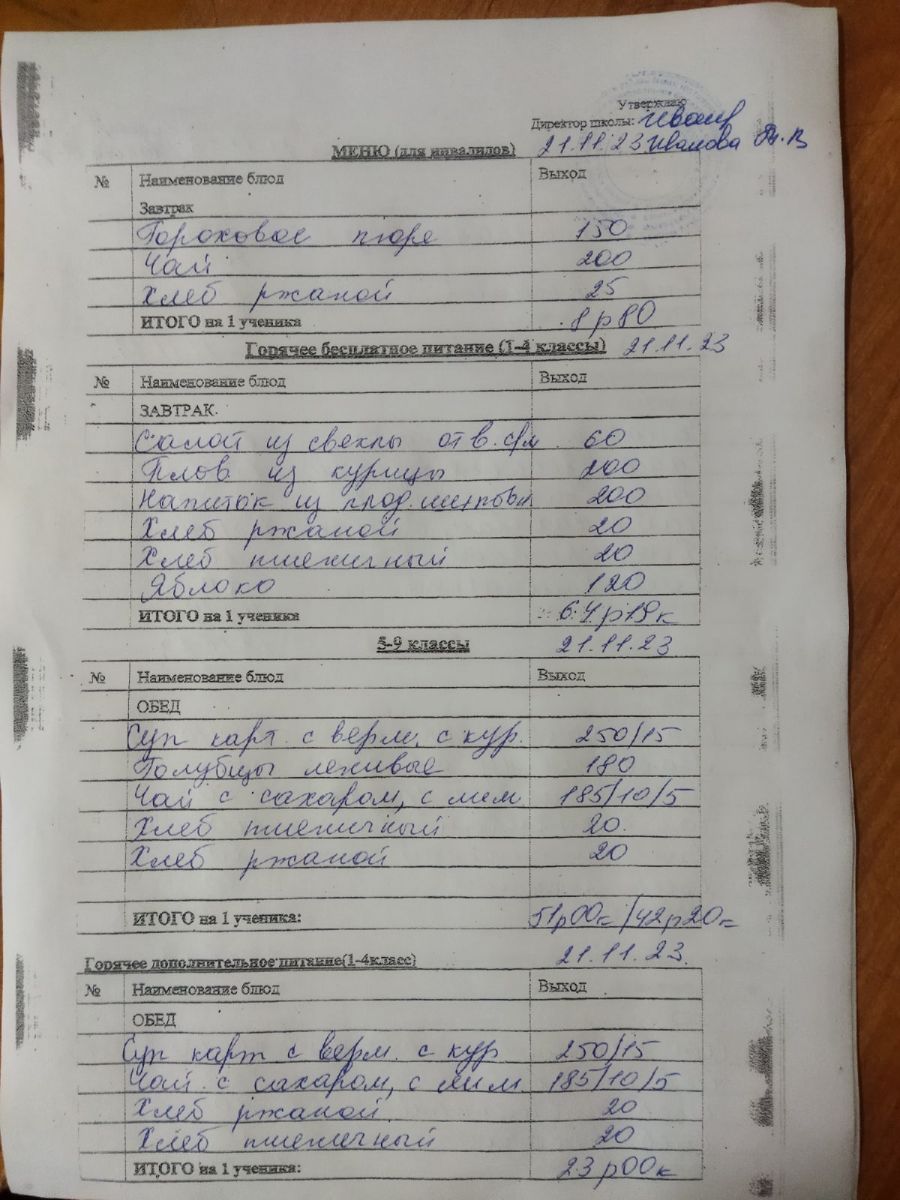 Утверждаю
Директор школы:
МЕНЮ (для инвалидов) 21.11.23 Иванова
№ Наименование блюд Выход
Завтрак
Гороховое пюре 150
Чай 200
Хлеб ржаной 25
ИТОГО на 1 ученика 8р80
Горячее бесплатное питание (1-4 классы) 21.11.23
№ Наименование блюд Выход
ЗАВТРАК.
Салат из свеклы отв. с р/м 60
Плов из курицы 200
Напиток из плод. шиповн 200
Хлеб ржаной 20
Хлеб пшеничный 20
Яблоко 120
ИТОГО на 1 ученика 64р19к
5-9 классы 21.11.23
№ Наименование блюд Выход
ОБЕД
Суп карт. с верм, с кур. 250/15
Голубцы ленивые 180
Чай с сахаром, с лим 185/10/5
Хлеб пшеничный 20.
Хлеб ржаной 20
ИТОГО на 1 ученика: 51р00к/42р20к
Горячее дополнительное питание(1-4класс) 21.11.23.
№ Наименование блюд Выход
ОБЕД
Суп карт с верм. с кур 250/15
Чай с сахаром, с лим 185/10/5
Хлеб ржаной 20
Хлеб пшеничный 20
ИТОГО на 1 ученика: 23р00к